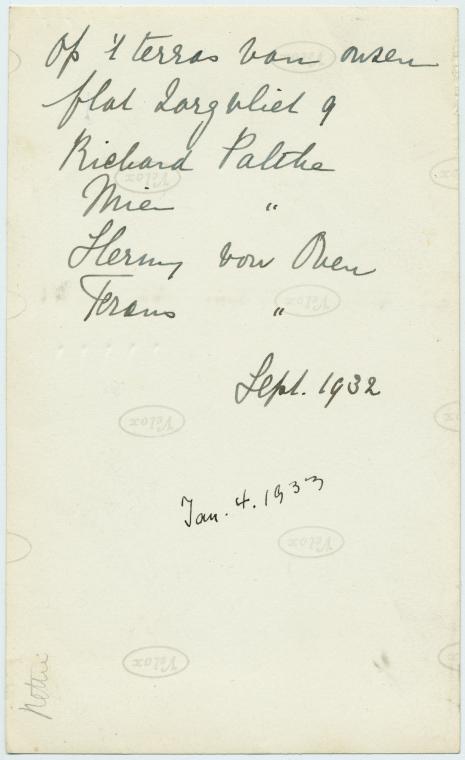 Op 't terras van onzen
flat Zorgvliet 9
Richard Palthe
Mien "
Hermy von Oven
Frans "
Sept. 1932
Jan. 4. 1933
Velox
Velox
Velox
Velox
Velox
Velox
Nettie